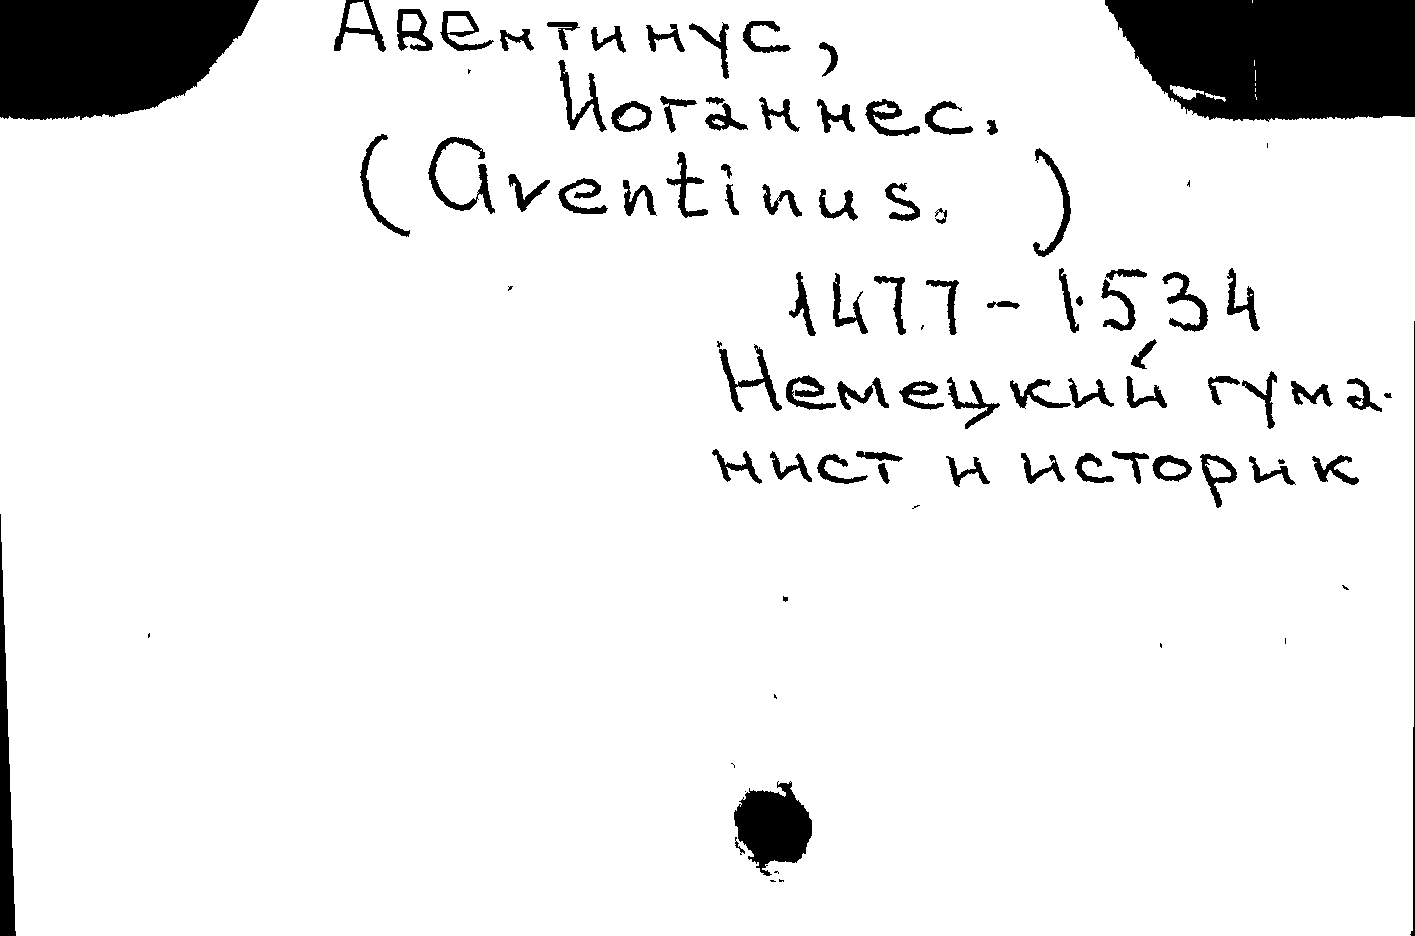 Авентинус,
Иоганнес.
(Aventinus. )
1477-1534
Немецкий гума-
нист и историк